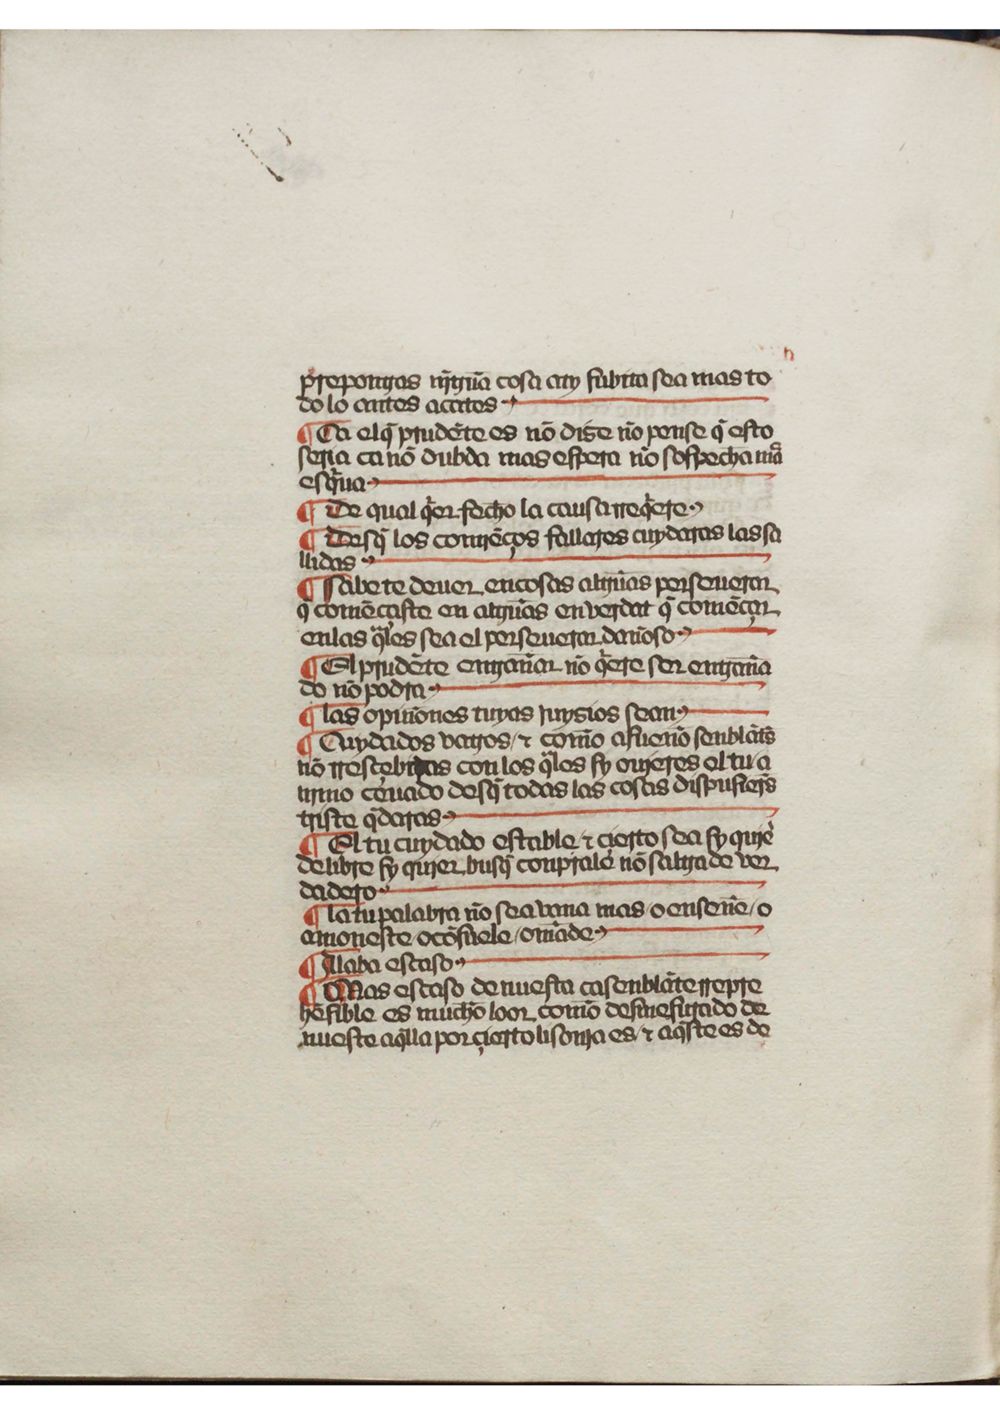 prepongas nīguā cosa ay subita sea mas to
do lo antes acates
¶ Ca el q̄ prudēte es nō dize nō pense q̄ esto
seria ca nō dubda mas espera nō sospecha mas
esq̄ua
¶ De qual q̄er fecho la causa rreq̄ere
¶ Desq̄ los comiēços fallares cuydaras las sa
llidas
¶ Sabe te deuer en cosas algūas perseuerar
q̄ comēçaste en algūas en verdat q̄ comēçar
en las q̄les sea el perseuerar dañoso
¶ El prudēte engañar nō q̄ere ser engaña
do nō podra
¶ Las opiniones tuyas juyzios sean
¶ Cuydados vagos / ⁊ como a sueño senblātes
nō rrescebiras con los q̄les sy ouieres el tu a
nimo ceuado desq̄ todas las cosas dispusieres
triste q̄daras
¶ El tu cuydado estable ⁊ çierto sea sy quier
delibre sy quier busq̄ conprale nō salga de ver
dadero
¶ La tu palabra nō sea vana mas / o enseñe / o
amoneste o cōsuele / o māde
¶ Alaba escaso
¶ Mas escaso denuesta ca senblāte rrepre
hēsible es mucho loor como desmesurado de
nueste aq̄lla por çierto lisonja es / ⁊ aq̄ste es de